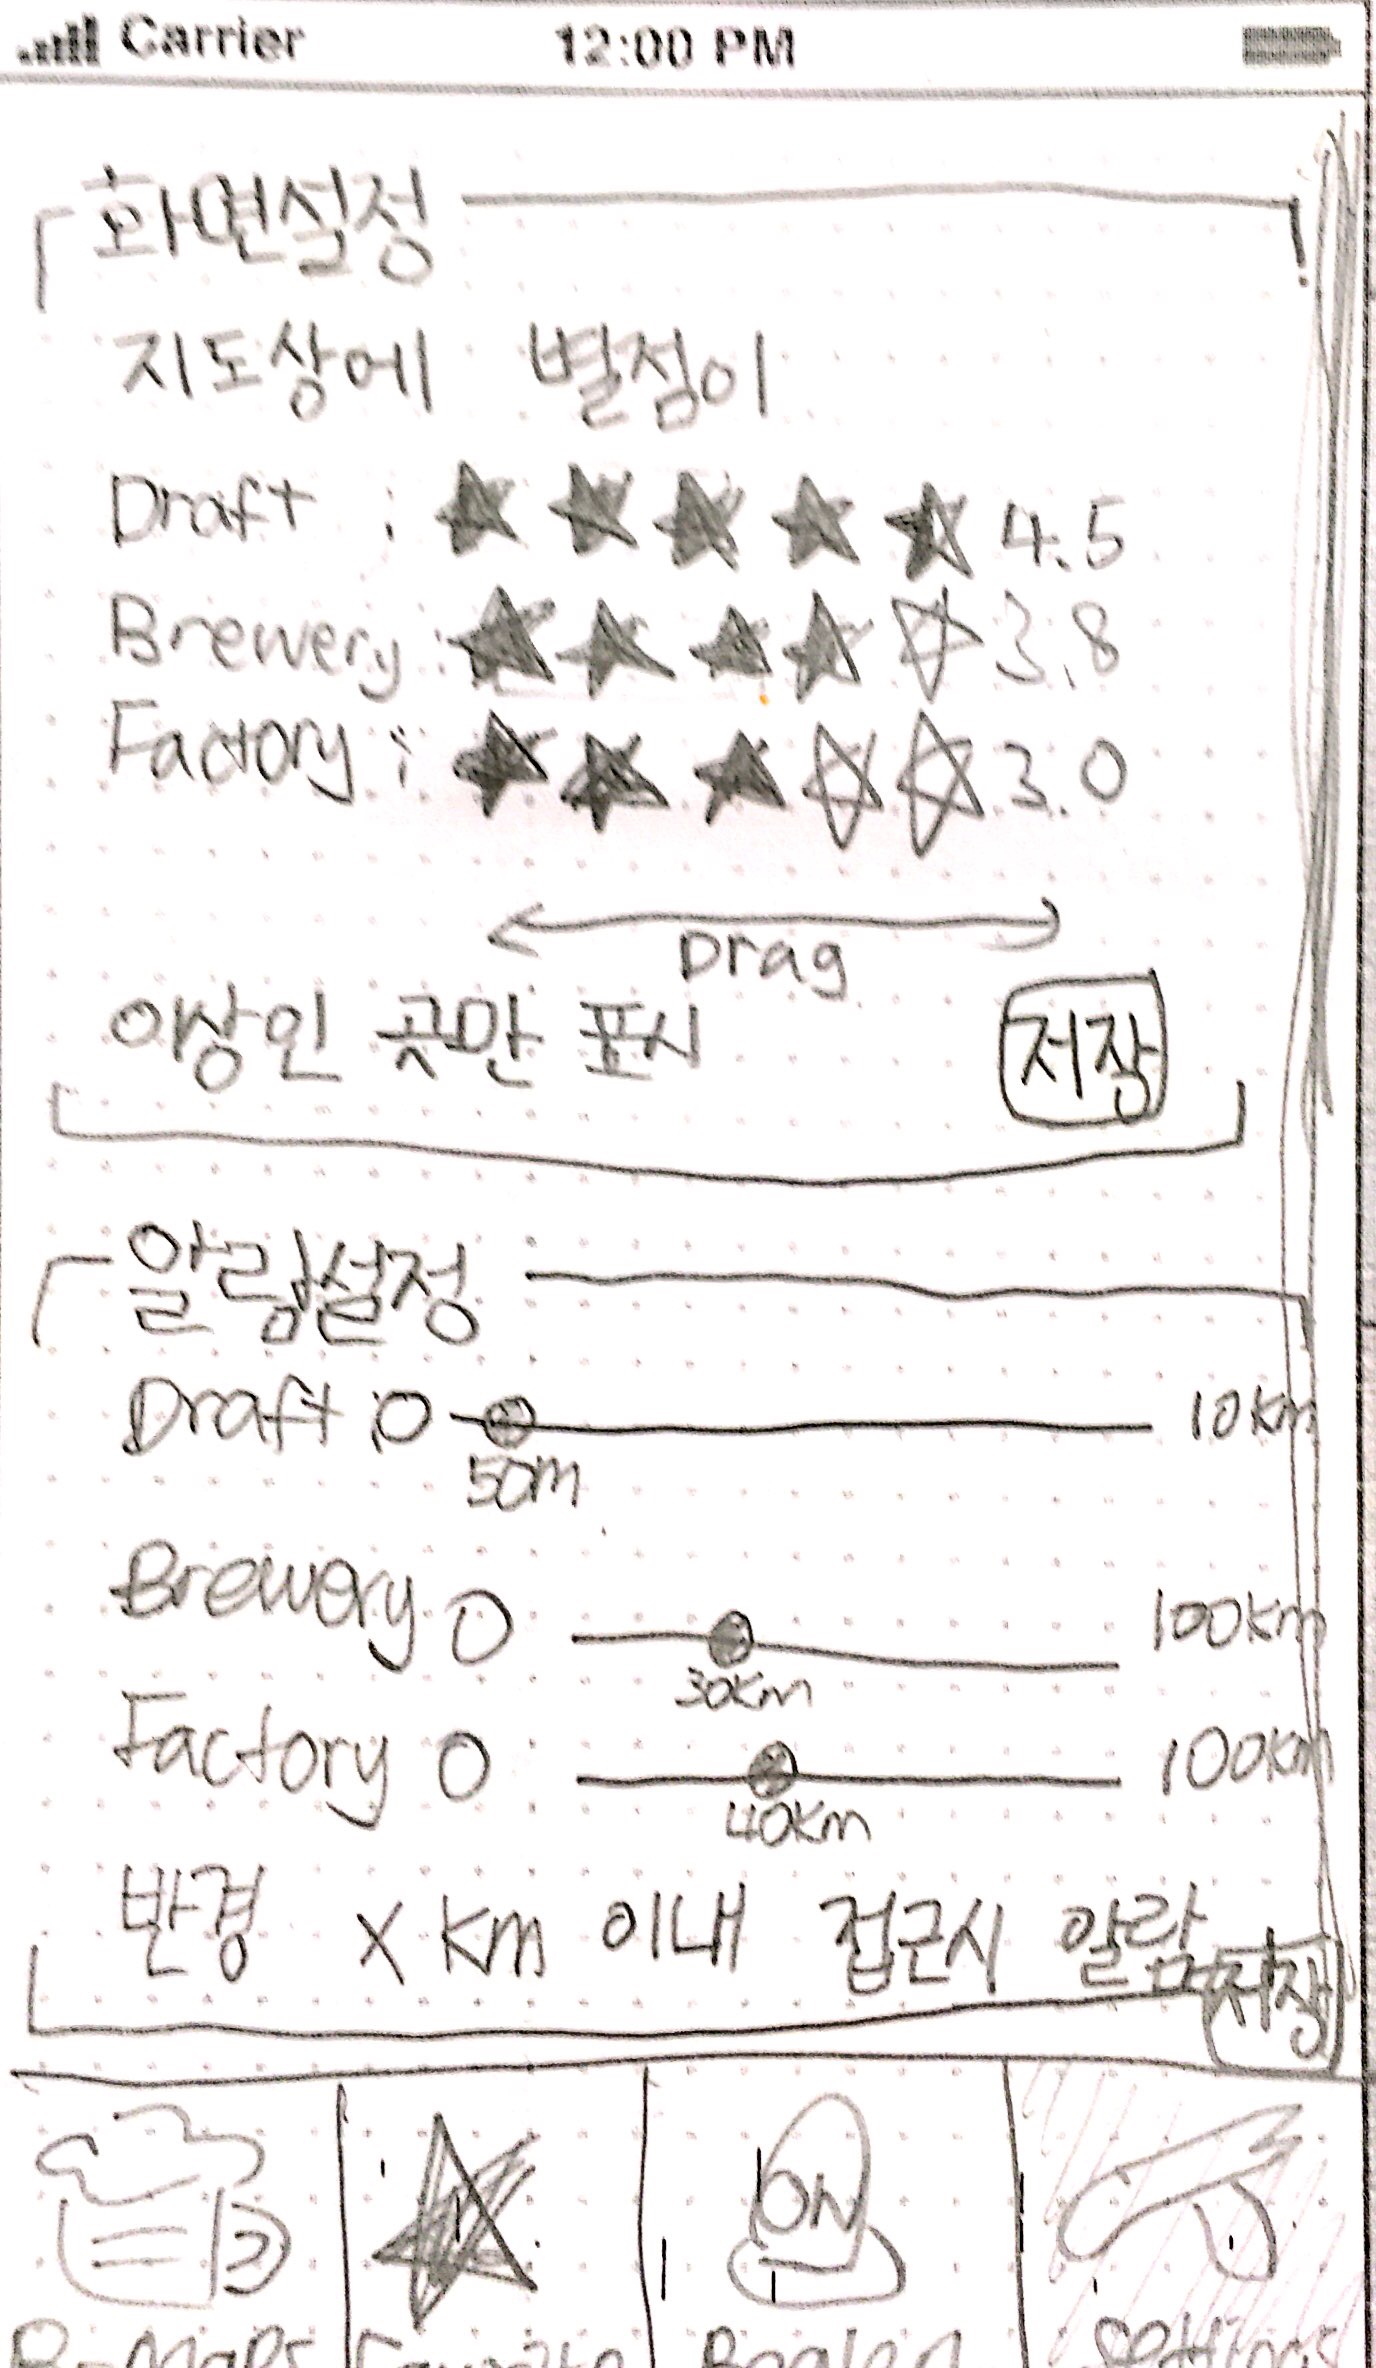 Carrier 12:00 PM
화면설정
지도상에 별점이
Draft : ★★★★★ 4.5
Brewery : ★★★★☆ 3.8
Factory : ★★★☆☆ 3.0
Drag
이상인 곳만 표시 저장
알림설정
Draft : 0 10km
50m
Brewery 0 100km
30km
Factory 0 100km
40km
반경 x km 이내 접근시 알람 저장
ON
B-Maps Favorite Settings